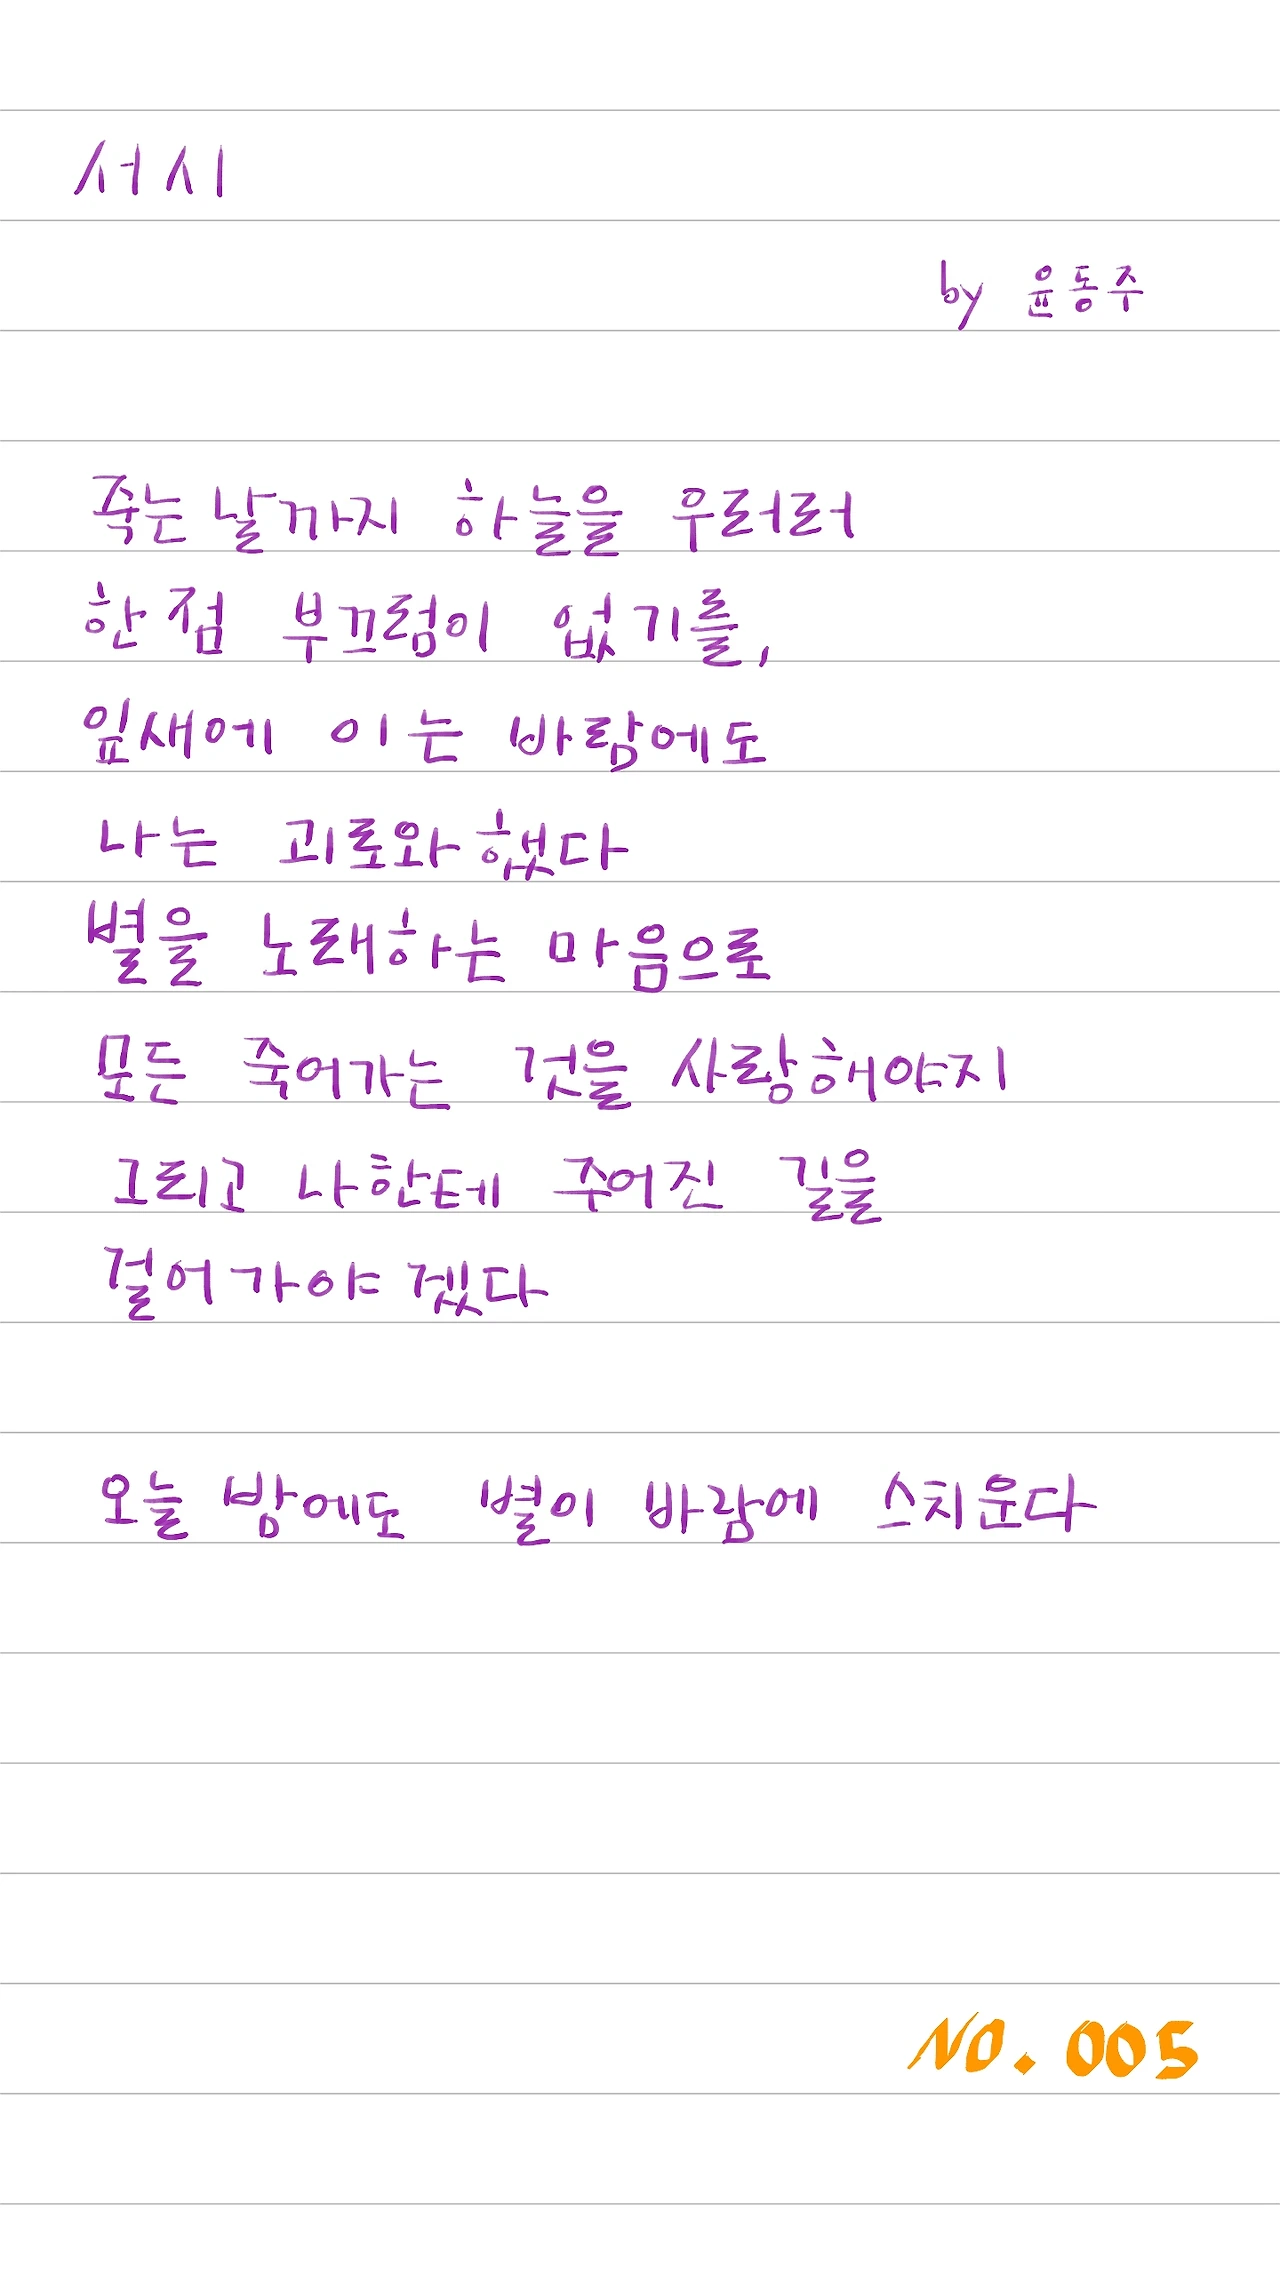 서시
by 윤동주
죽는 날까지 하늘을 우러러
한 점 부끄럼이 없기를,
잎새에 이는 바람에도
나는 괴로와했다
별을 노래하는 마음으로
모든 죽어가는 것을 사랑해야지
그리고 나한테 주어진 길을
걸어가야겠다
오늘 밤에도 별이 바람에 스치운다
NO. 005